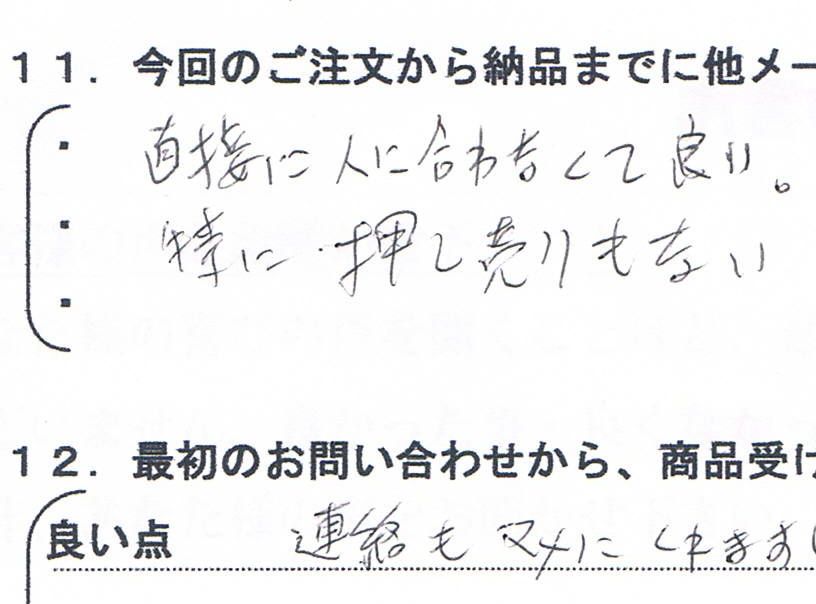 11. 今回のご注文から納品までに他メー
・ 直接に人に合わなくて良い。
・ 特に押し売りもない
・
12. 最初のお問い合わせから、商品受け
良い点 連絡もマメにくれまし